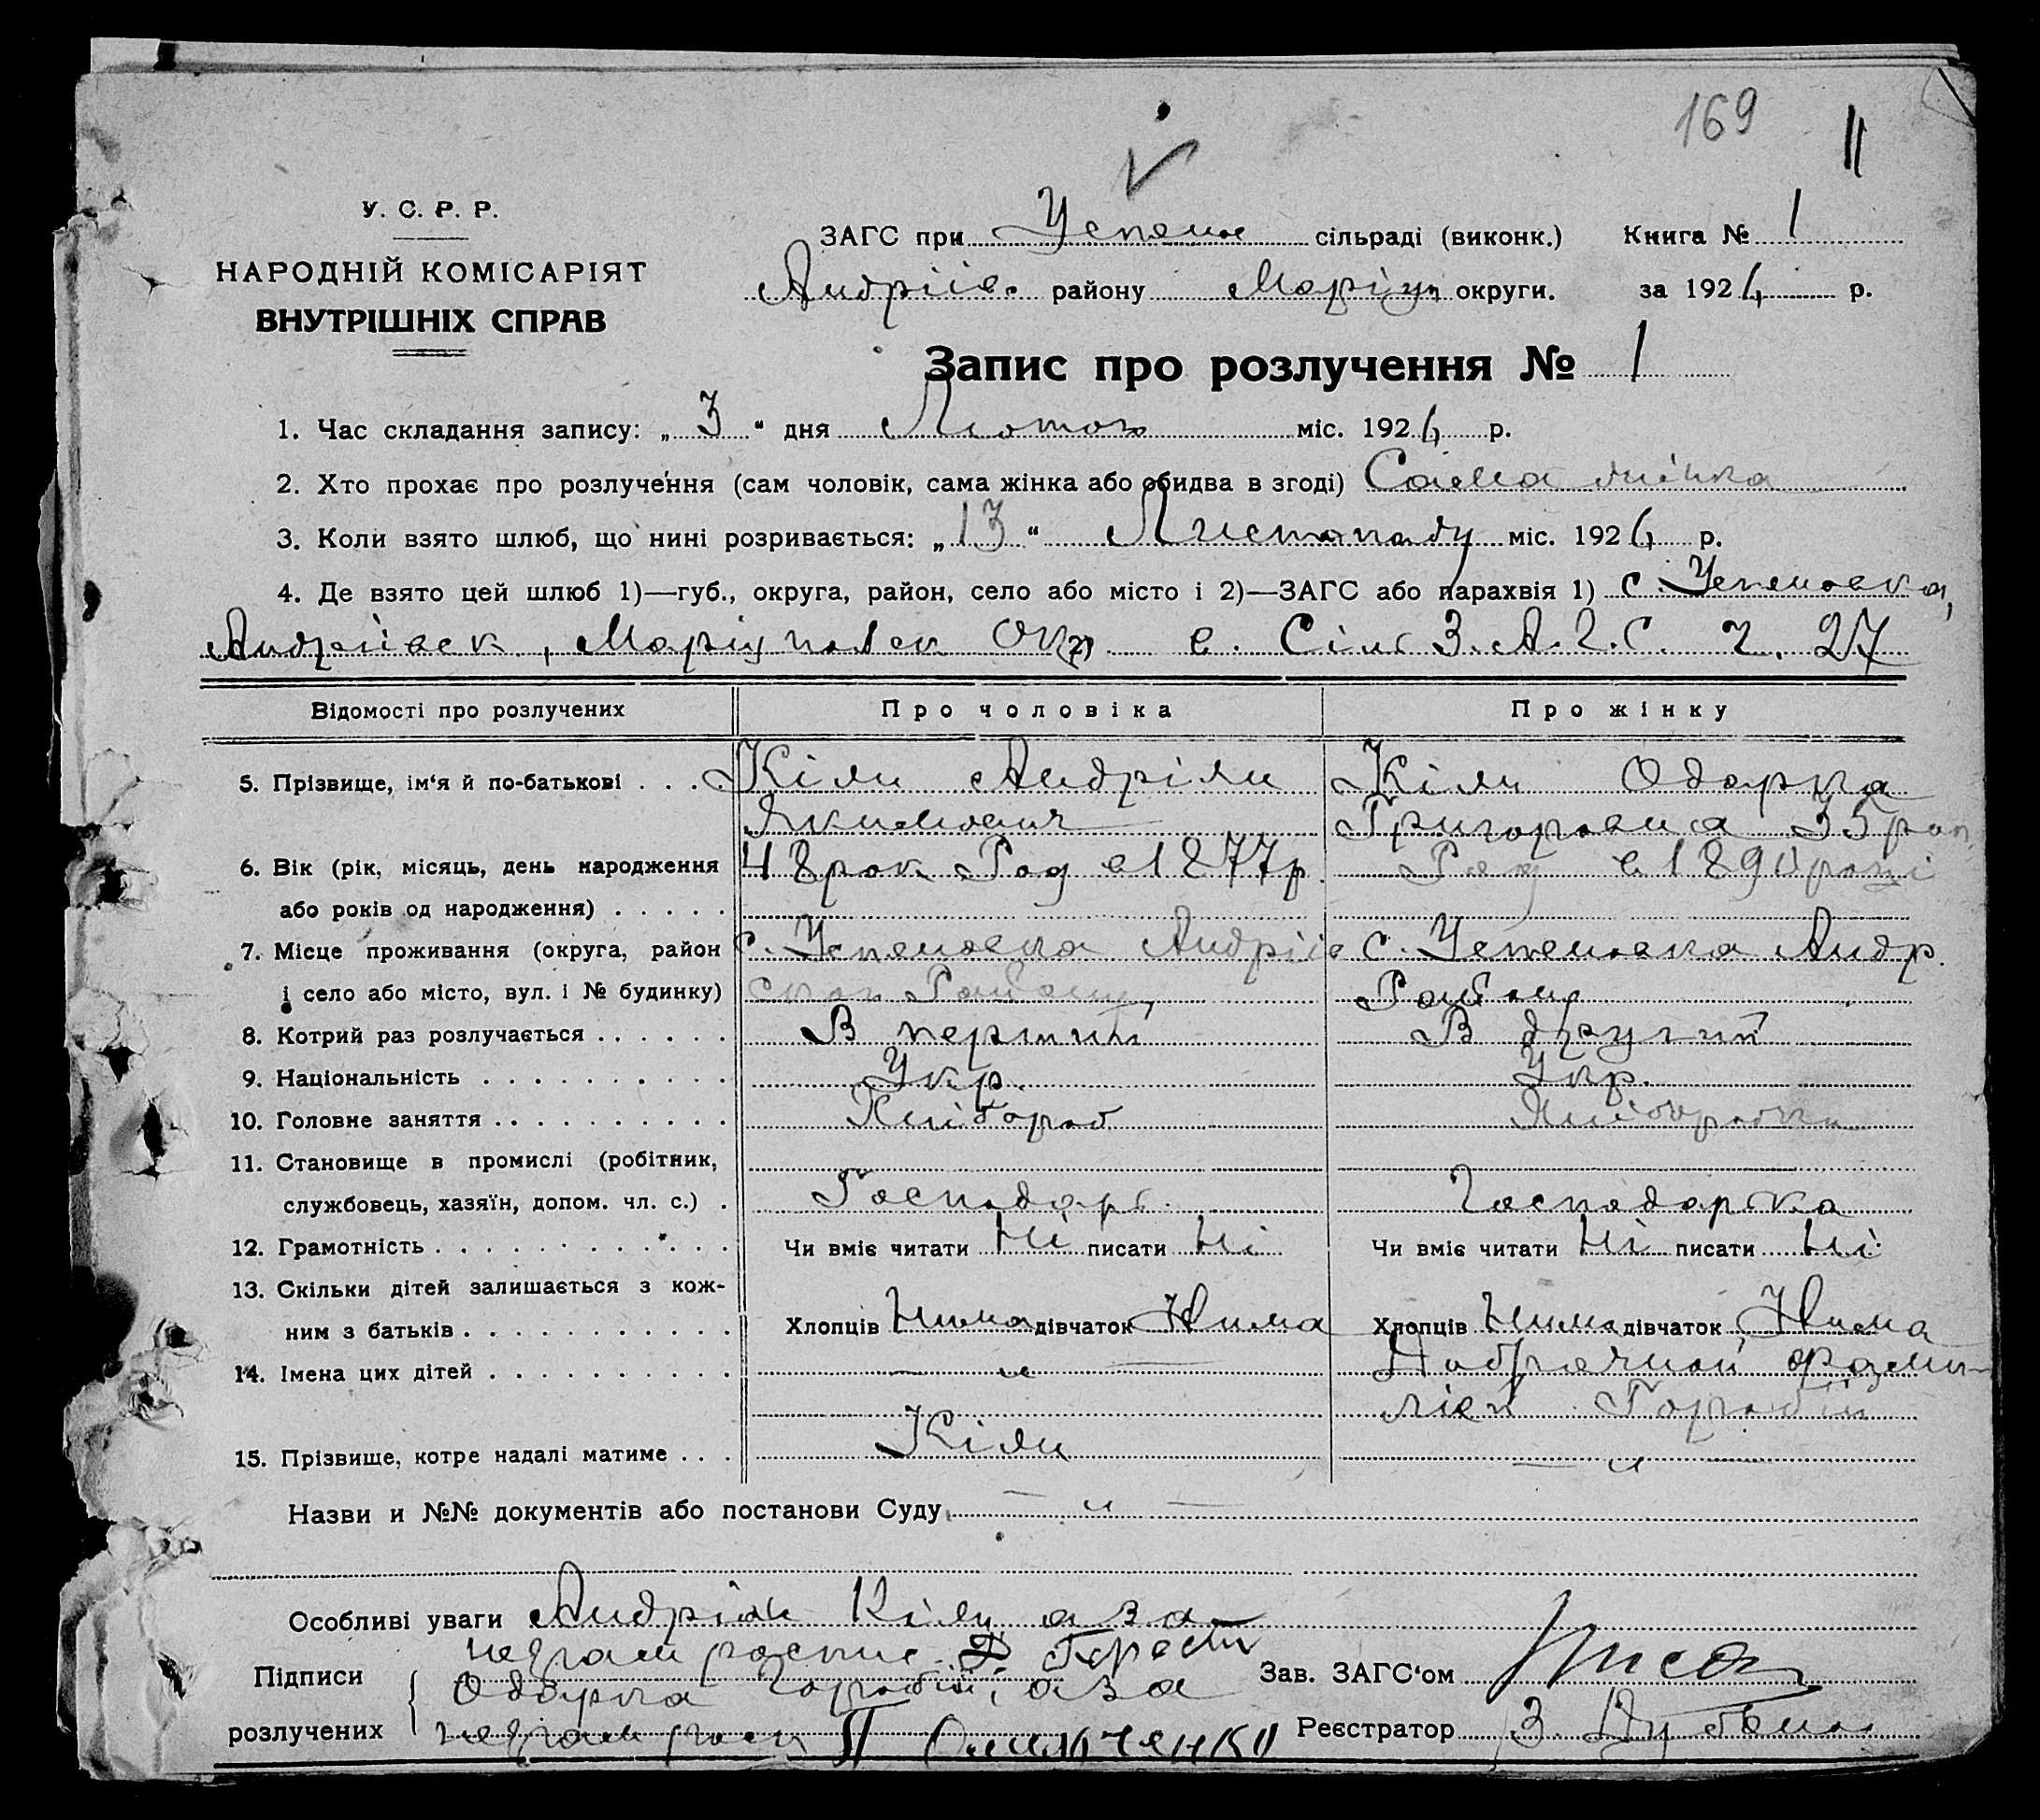 169
11
У. С. Р. Р.
НАРОДНІЙ КОМІСАРІЯТ
ВНУТРІШНІХ СПРАВ
ЗАГС при Успенов сільраді (виконк.) Книга № 1
Андріїв. району Маріуп округи. за 1924 р.
Запис про розлучення № 1
1. Час складання запису: „3“ дня Лютого міс. 1924 р.
2. Хто прохає про розлучення (сам чоловік, сама жінка або обидва в згоді) Сама жінка
3. Коли взято шлюб, що нині розривається: „13“ Листопаду міс. 1924 р.
4. Де взято цей шлюб 1)—губ., округа, район, село або місто і 2)—ЗАГС або парахвія 1) с. Успеновка,
Андріївск, Маріупольск Окр. в. Сіль З.А.Г.С. ч. 27
Відомості про розлучених Про чоловіка Про жінку
5. Прізвище, ім‘я й по-батькові . . . . Кіян Андріян Кіян Одарка
Якимович Григоровна 35 рок
6. Вік (рік, місяць, день народження 48 рок Род в 1877 р. Род в 1890 році
або років од народження) . . . . .
7. Місце проживання (округа, район с. Успеновка Андріїв с. Успеновка Андр.
і село або місто, вул. і № будинку) ског Району Району
8. Котрий раз розлучається . . . . . . В перший В другий
9. Національність . . . . . . . . . . Укр. Укр.
10. Головне заняття . . . . . . . . . . Хлібороб Хлібробка
11. Становище в промислі (робітник,
службовець, хазяїн, допом. чл. с.) . Господарь Господарка
12. Грамотність . . . . . . . . . . . . Чи вміє читати Ні писати Ні Чи вміє читати Ні писати Ні
13. Скільки дітей залишається з кож-
ним з батьків . . . . . . . . . . . Хлопців Нима дівчаток Нима Хлопців Нима дівчаток Нима
14. Імена цих дітей . . . . . . . . . . — „ — Добрачной фами-
лієй
15. Прізвище, котре надалі матиме . . . Кіян — „ —
Назви и №№ документів або постанови Суду — „ —
Особливі уваги Андріян Кіян а за
Підписи неграм роспис
розлучених Одарка а за
неграм росп П Омильченко
Зав. ЗАГС‘ом
Реєстратор З.